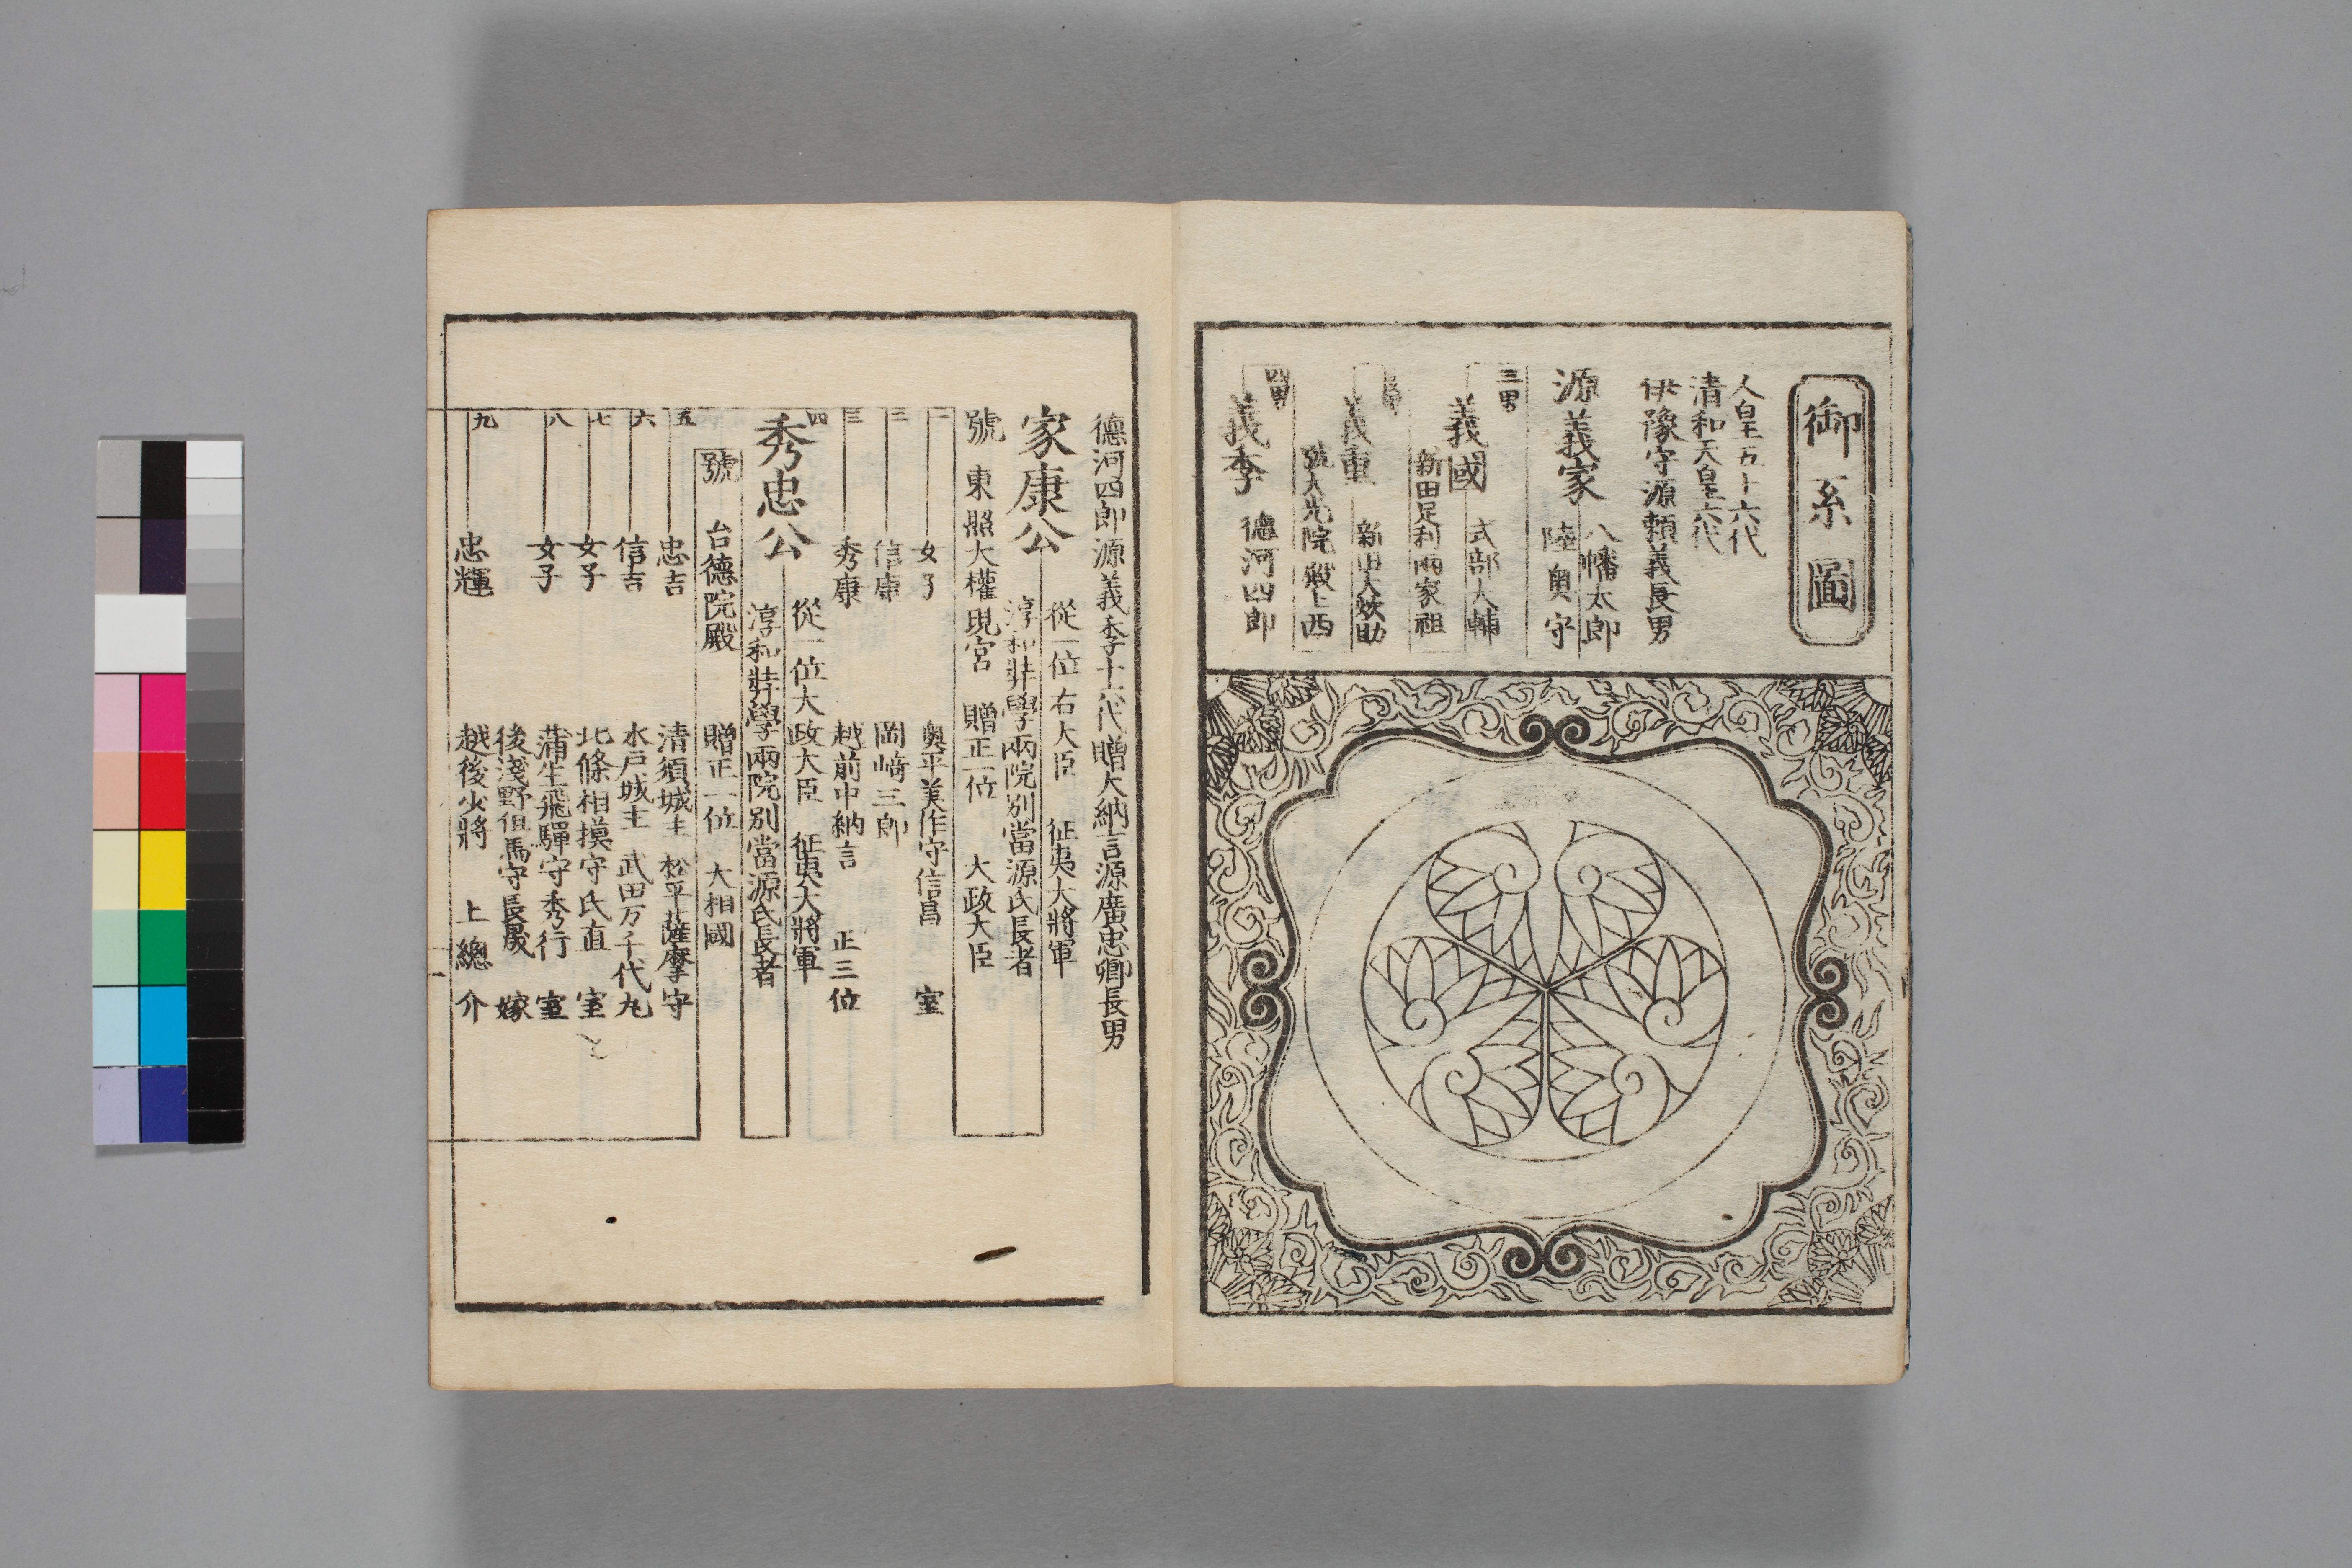 御系圖
人皇五十六代
清和天皇六代
伊豫守源頼義長男
源義家
八幡太郎
陸奥守
三男
義國
式部大輔
新田足利兩家祖
義重
新田大炊助
號大光院殿上西
四男
義季
徳河四郎
德河四郎源義季十六代贈大納言源廣忠卿長男
家康公
從一位右大臣 征夷大將軍
淳和弉學兩院別當源氏長者
號 東照大權現宮 贈正一位 大政大臣
一 女子 奥平美作守信昌 室
二 信康 岡﨑三郎
三 秀康 越前中納言 正三位
四
秀忠公
從一位大政大臣 征夷大將軍
淳和弉學兩院別當源氏長者
號 台德院殿 贈正一位 大相國
五 忠吉 清須城主 松平薩摩守
六 信吉 水戸城主 武田万千代丸
七 女子 北條相摸守氏直 室
八 女子 蒲生飛驒守秀行 室
後淺野但馬守長晟 嫁
九 忠輝 越後少將 上總介
一